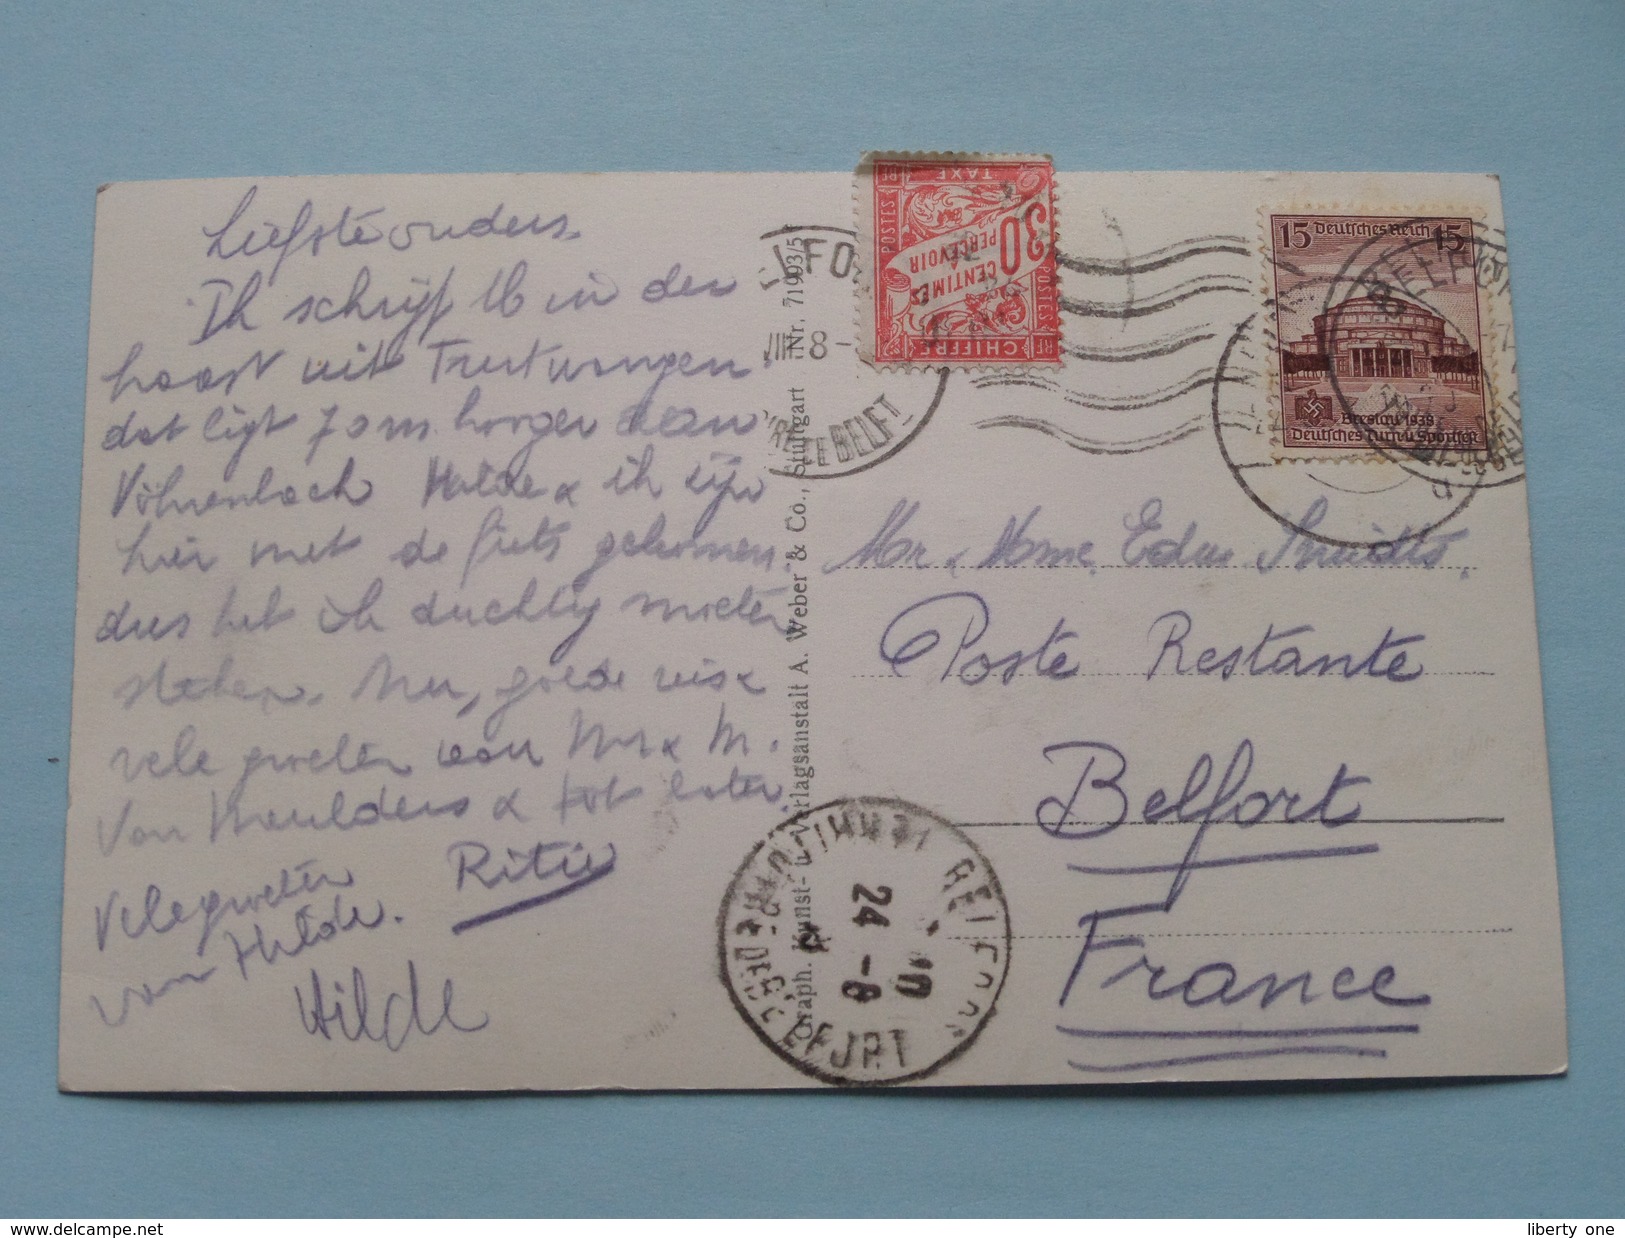 Liefste ouders.
Ik schrijf U in der
haast uit Furtwangen
dat ligt 70 m hooger dan
Vöhrenbach Hilde & ik zijn
hier met de fiets gekomen.
dus heb ik duchtig moeten
stoken. Nu, goede reis &
vele groeten van Mr & M.
Van Meulders & tot later.
Ritie
Vele groeten
van Hilde.
Hilde
Nr. 71993/5
Graph. Kunst- u. Verlagsanstalt A. Weber & Co., Stuttgart
TAXE
POSTES
30
CENTIMES
PERCEVOIR
POSTES
CHIFFRE
RF
15 Deutsches Reich 15
Breslau 1938
Deutsches Turn u Sportfest
VIII 8-
BELFORT
24 -8
Mr & Mme. Edw Smidts.
Poste Restante
Belfort
France
liberty one
www.delcampe.net